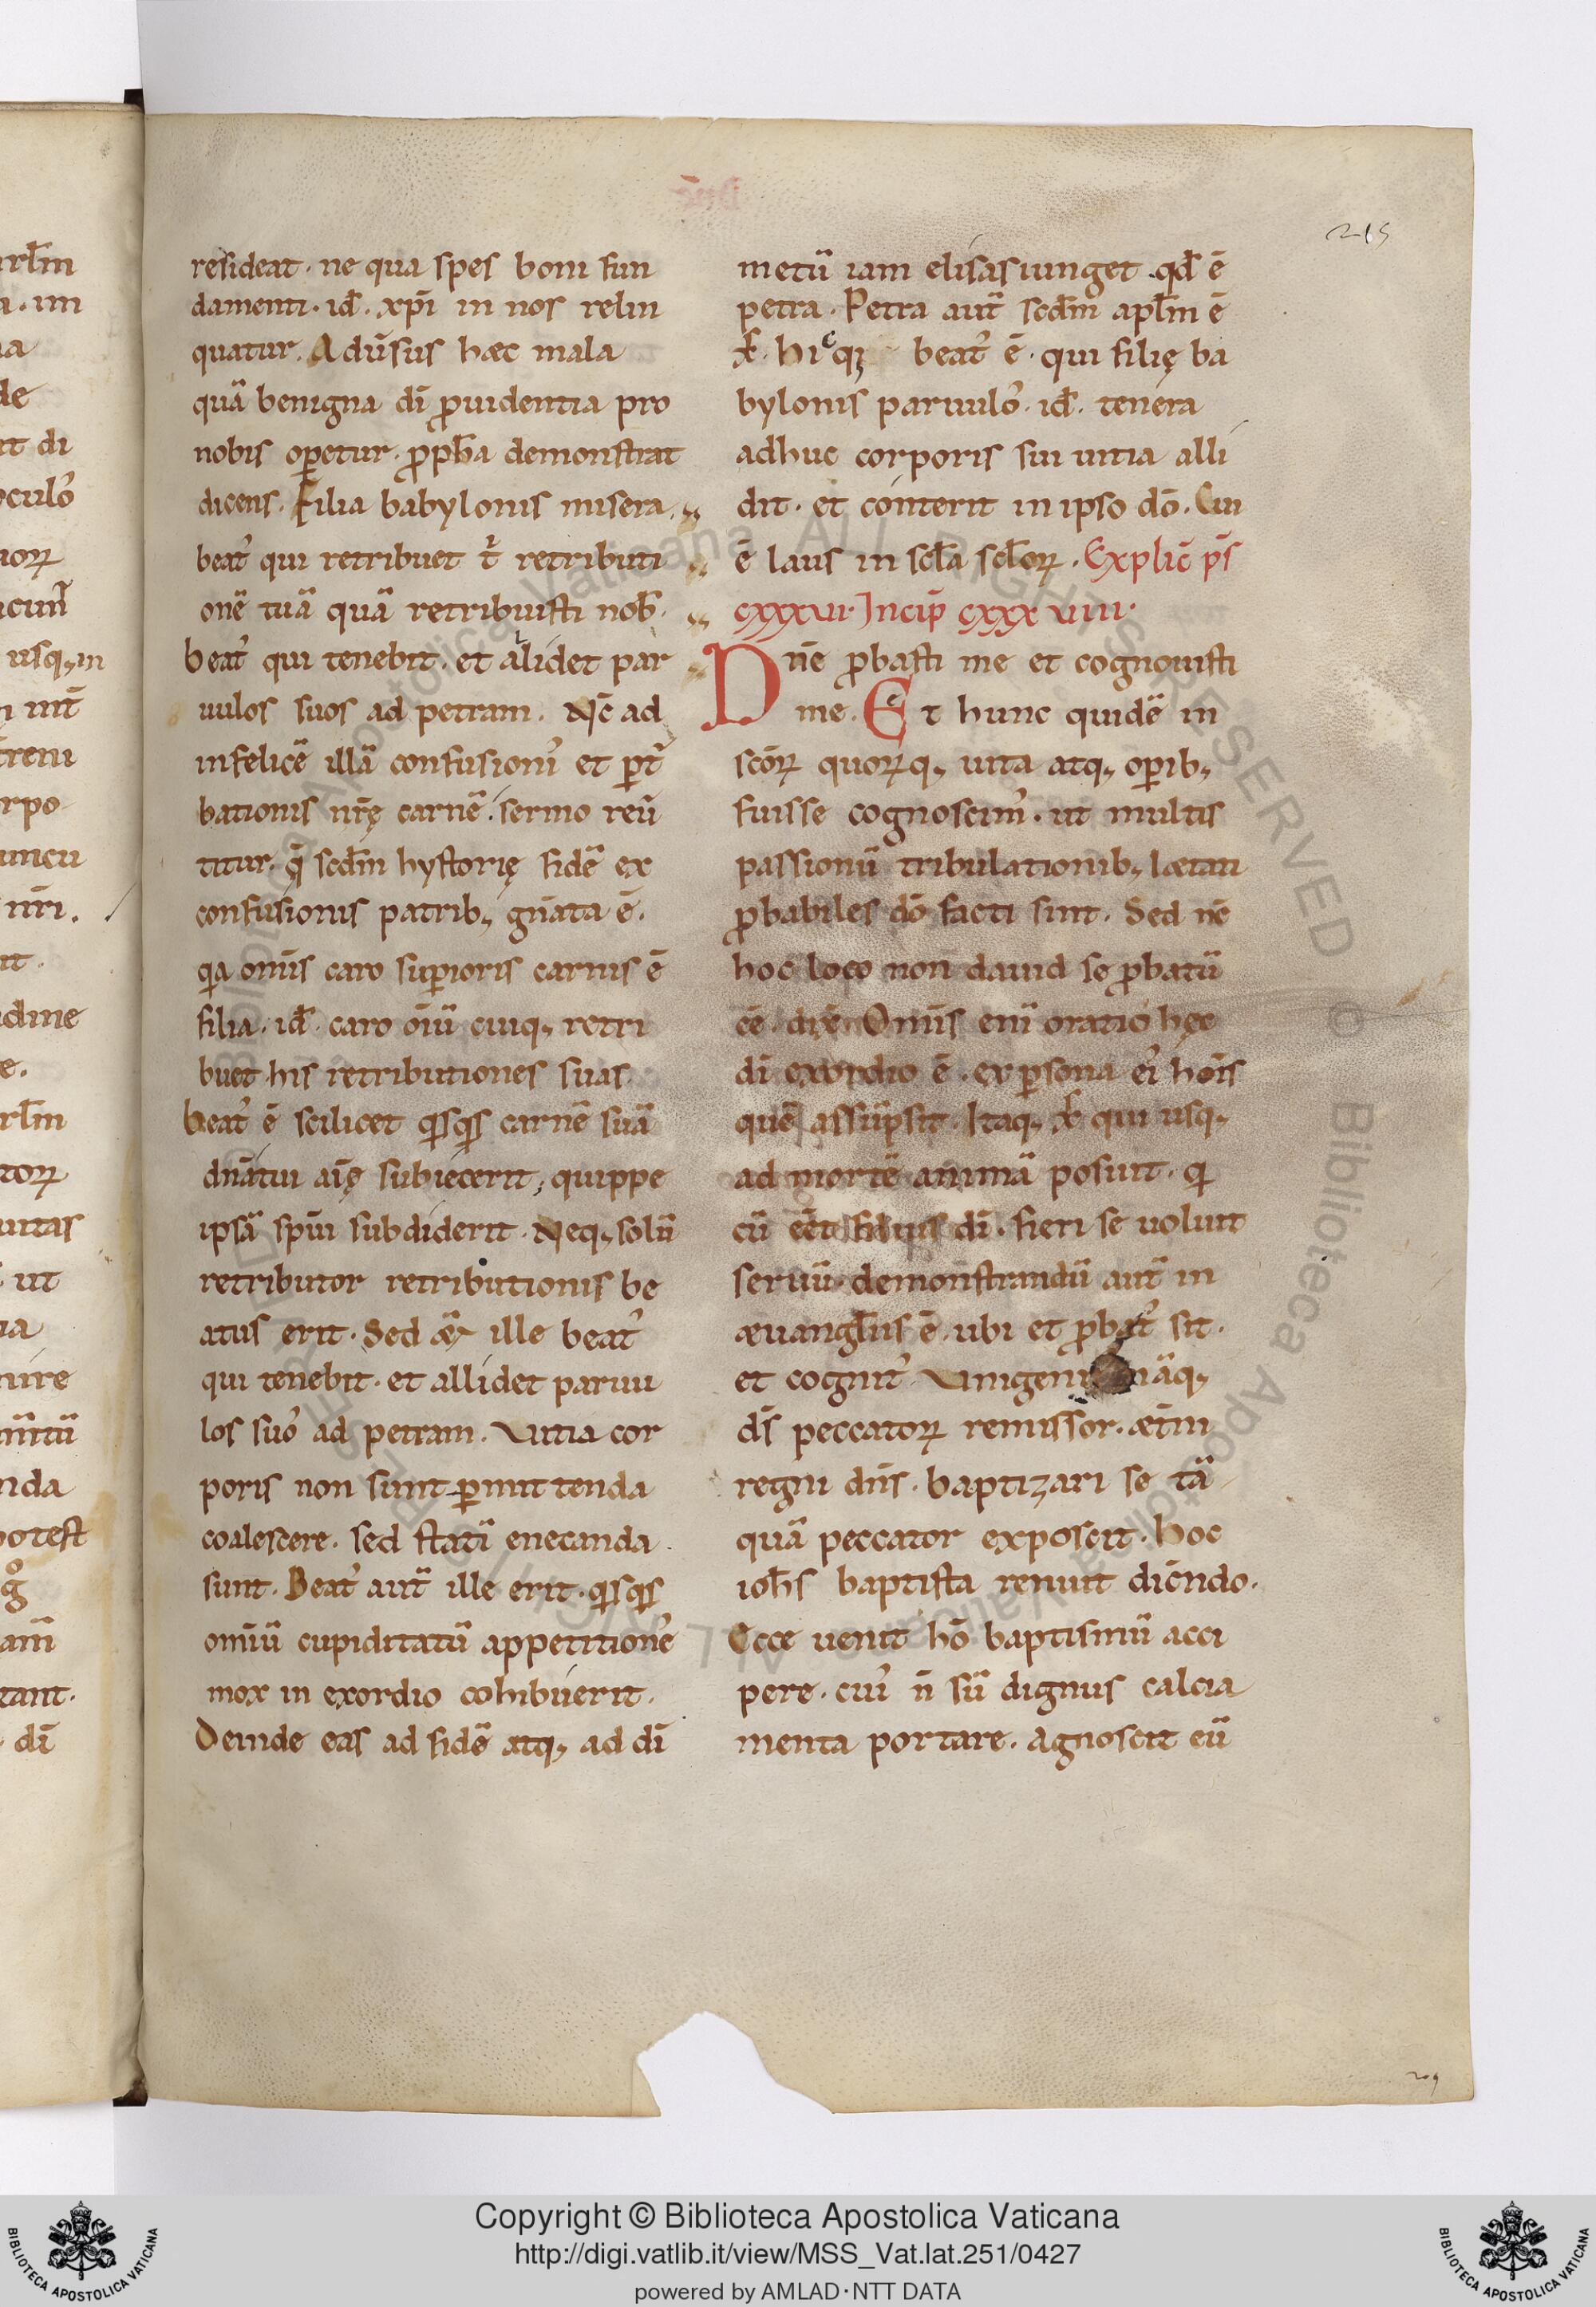 215
resideat · ne qua spes boni fun
damenti · id̄ · xp̄i in nos relin
quatur. Adūsus hæc mala
quā benigna dī ꝓuidentia pro
nobis oꝑetur · ꝓpħa demonstrat
dicens. Filia babylonis misera.
beat᾽ qui retribuet t̄ retributi
onē tuā quā retribuisti nob̄.
beat᾽ qui tenebit · et allidet par
uulos suos ad petram. Nc̄ ad
infelicē illā confusionis᾽ et ꝑt᾽
bationis nr̄ę carnē. sermo reū
titur. q̄ scd̄m hystorię fidē ex
confusionis patrib; gn̄ata ē.
qa omīs caro suꝑioris carnis ē
filia · id̄ · caro oīū cuiq; retri
buet his retributiones suas.
beat᾽ ē scilicet qisqis carnē suā
dn̄atui aīę subiecerit; quippe
ipsā spūi subdiderit. Neq; solū
retributor retributionis be
atus erit. Sed ǣ ille beat᾽
qui tenebit · et allidet paruu
los suo᾽ ad petram. Vitia cor
poris non sunt ꝑmittenda
coalescere. sed statī enecanda
sunt. Beat᾽ aut̄ ille erit · qisqis
omīū cupiditatū appetitione᾽
mox in exordio cohibuerit.
Deinde eas ad fidē atq; ad dī
metū iam elisas iunget · qd̄ ē
petra. Petra aut̄ scd̄m apl̄m ē
x᾽. hicq; beat᾽ ē · qui filię ba
bylonis paruulo᾽ · id̄ · tenera
adhuc corporis sui uitia alli
dit · et conterit in ipso dō. Cui
ē laus in scl̄a scl̄oꝝ. Explic̄ ps̄
cxxxvi. Incip̄ cxxxviii.
Dn̄e ꝓbasti me et cognouisti
me. Et hunc quidē in
scōꝝ quoꝝq; uita atq; oꝑib;
fuisse cognoscim᾽. ut multis
passionū tribulationib; lætati
ꝓbabiles dō facti sint. Sed nc̄
hoc loco non dauid se ꝓbatū
ēē dix̄. Omīs enī oratio hęc
dī exordio ē. ex ꝑsona ei᾽ hoīs
quē assūpsit. Itaq; x᾽ qui usq;
ad mortē animā posuit. qi
cū eēt filius dī. fieri se uoluit
seruū. demonstrandū aut̄ in
æuangl̄iis ē. ubi et ꝓbat᾽ sit.
et cognit᾽. Vnigeni āq;
ds̄ peccatoꝝ remissor. æt̄ni
regni dn̄s. baptizari se tā
quā peccator exposcit. hoc
ioħs baptista renuit dicēndo.
Ecce uenit hō baptismū acci
pere. cui᾽ n̄ sū dignus calcia
menta portare. agnoscit eū
209
Copyright © Biblioteca Apostolica Vaticana
http://digi.vatlib.it/view/MSS_Vat.lat.251/0427
powered by AMLAD·NTT DATA